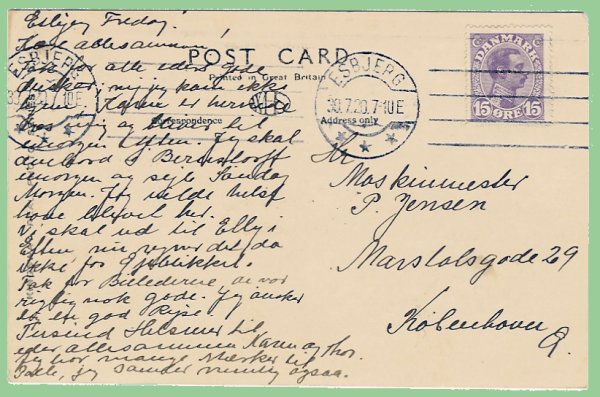 Esbjerg Fredag.
Kære allesammen!
Tak for alle eders gode
Ønsker, mig kom ikke
Karen er herinde
hos mig og bliver til
imorgen Aften. Jeg skal
ombord i Bernstorff
imorgen og sejle Søndag
Morgen. Jeg vilde helst
have blevet her.
Vi skal ud til Elly i
Aften, nu regner det da
ikke for Øjeblikket.
Tak for Billederne, de var
rigtig nok gode. Jeg ønsker
en god Rejse
Tusind Hilsner til
eder allesammen Karen og Thor.
Jeg har mange Mærker til
Palle, jeg samler nemlig ogsaa.
POST CARD
Printed in Great Britain
Correspondence
Address only
ESBJERG
30.7.20.7-10E
ESBJERG
30.7.20.7-10E
DANMARK
15 ØRE 15
Hr
Maskinmester
P. Jensen
Marstalsgade 29
København
Ø.